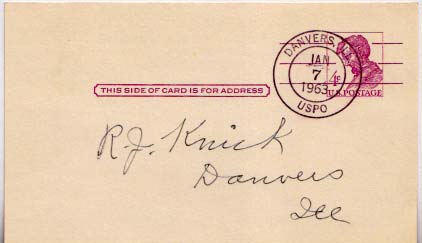 DANVERS, ILL.
JAN
7
1963
USPO
4¢
U.S. POSTAGE
THIS SIDE OF CARD IS FOR ADDRESS
R.J. Knick
Danvers
Ill